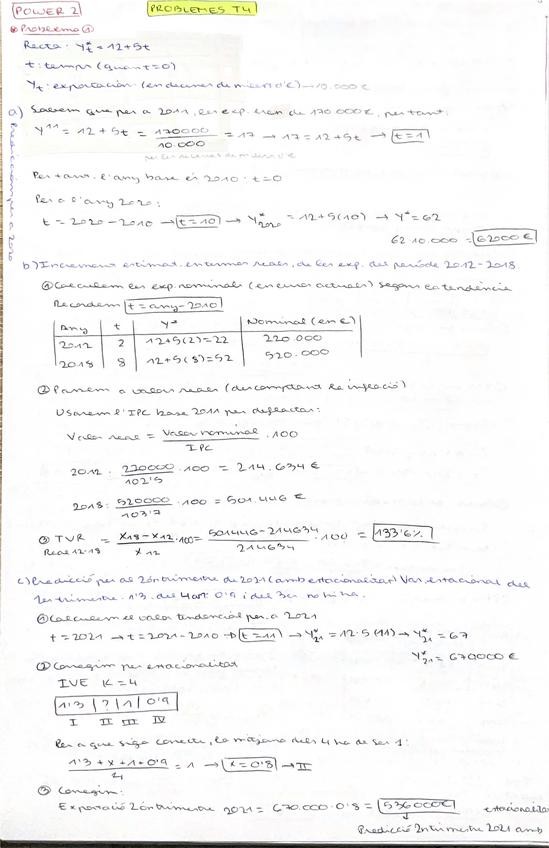 POWER 2
PROBLEMES T4
Problema 1
Recta: Yt* = 12+5t
t: temps (quan t=0)
Yt: exportación (en decenes de milers d'€) → 10.000 €
a) Sabem que per a 2011, les exp. eren de 170.000€, per tant:
Y11 = 12+5t = 170000/10.000 = 17 → 17 = 12+5t → t=1
Per tant, l'any base és 2010: t=0
Per a l'any 2020:
t = 2020-2010 → t=10 → Y*2020 = 12+5(10) → Y* = 62
62·10.000 = 62000€
b) Increment estimat, en termes reals, de les exp. del període 2012-2018
① Calculem les exp. nominals (en euros actuals) segons la tendència
Recordem t = any-2010
Any t Y* Nominal (en €)
2012 2 12+5(2)=22 220.000
2018 8 12+5(8)=52 520.000
② Passem a valors reals (descomptant la inflació)
Usarem l'IPC base 2011 per deflactar:
Valor real = Valor nominal/IPC · 100
2012: 220000/102'5 · 100 = 214.634 €
2018: 520000/103'7 · 100 = 501.446 €
③ TVR Real 12-18 = x18-x12/x12 · 100 = 501446-214634/214634 · 100 = 133'6%
c) Predicció per al 2ón trimestre de 2021 (amb estacionalitat) Var. estacional del
1er trimestre 1'3, del 4art 0'9 i del 3er no hi ha.
① Calculem el valor tendencial per a 2021
t = 2021 → t = 2021-2010 → t=11 → Y*21 = 12·5(11) → Y*21 = 67
Y*21 = 670000 €
② Corregim per estacionalitat
IVE K=4
1'3 | ? | 1 | 0'9
I II III IV
Per a que siga correcte, la mitjana dels 4 ha de ser 1:
1'3+x+1+0'9/4 = 1 → x=0'8 → II
③ Corregim:
Exportació 2ón trimestre 2021 = 670.000·0'8 = 536000€
Predicció 2n trimestre 2021 amb